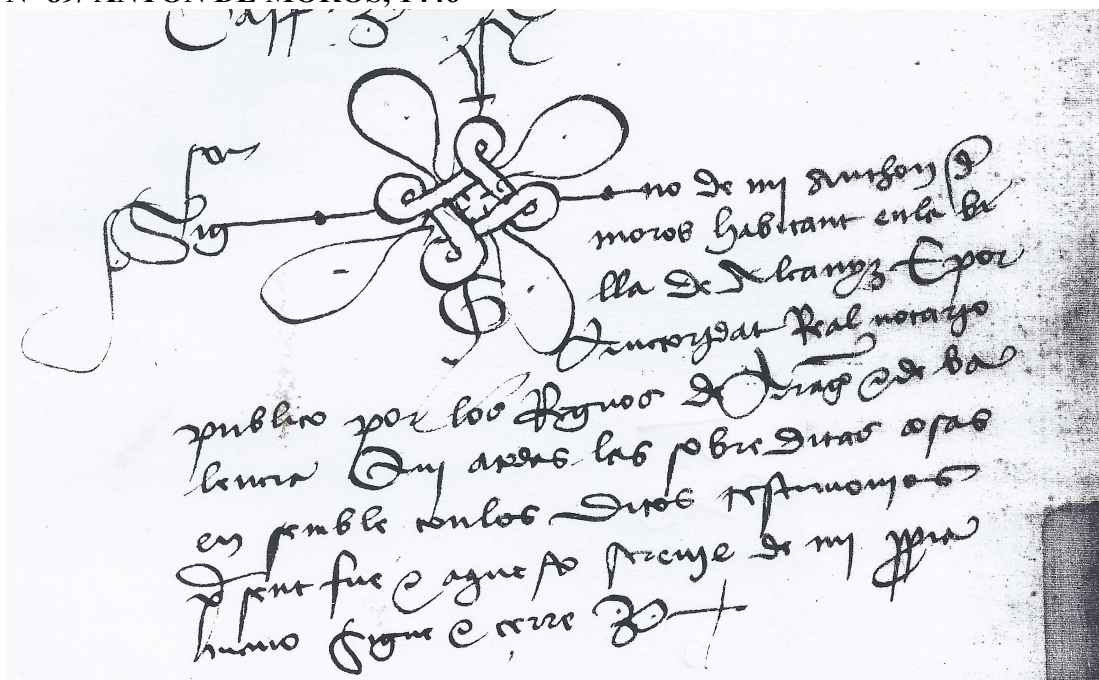 Nº 697 ANTON DE MOROS, 1440
Sig no de mi Anthon d
moros habitant en la vi
lla de Alcanyz E por
Auctoridat Real notario
publico por los Regnos d Arag e de va
lencia Qui a todas las sobreditas cosas
en semble con los ditos testimonios
p sent fue e aquesto screuie de mi ppia
mano Signe e cerre